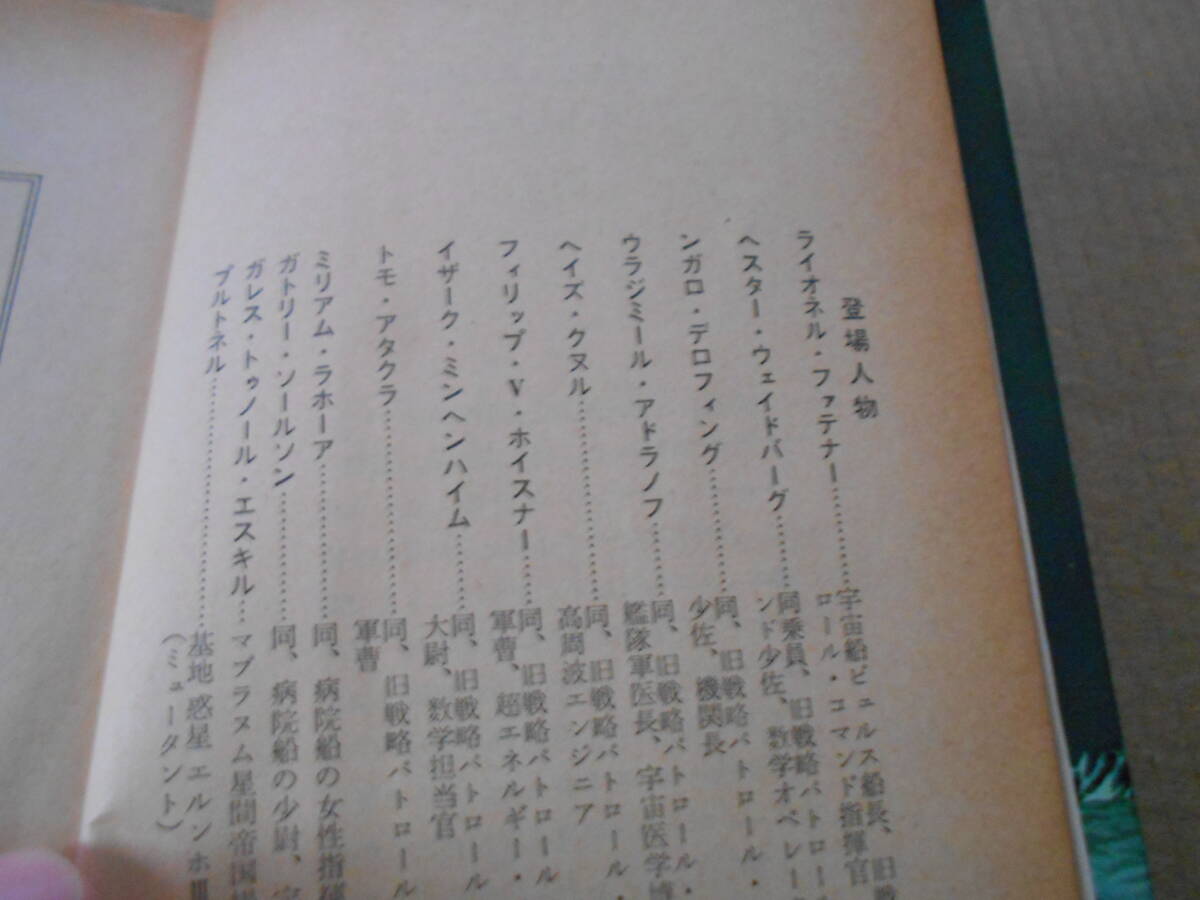 登場人物
ライオネル・ファテナー…………宇宙船ビュルス船長、旧戦
ロール・コマンド指揮官
ヘスター・ウェイドバーグ…………同乗員、旧戦略パトロー
ンド少佐、数学オペレー
ンガロ・デロフィング…………同、旧戦略パトロール・
少佐、機関長
ウラジミール・アドラノフ…………同、旧戦略パトロール・
艦隊軍医長、宇宙医学博
ヘイズ・クヌル…………同、旧戦略パトロール・
高周波エンジニア
フィリップ・V・ホイスナー…………同、旧戦略パトロール
軍曹、超エネルギー・
イザーク・ミンヘンハイム…………同、旧戦略パトロール
大尉、数学担当官
トモ・アタクラ…………同、旧戦略パトロール
軍曹
ミリアム・ラホーア…………同、病院船の女性指揮
ガトリー・ソールソン…………同、病院船の少尉、
ガレス・トゥノール・エスキル…マブラヌム星間帝国
プルトネル…………基地惑星エルンホⅢ
(ミュータント)